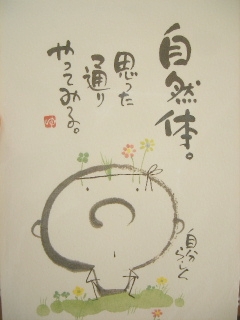 自然体。
思った
通り
やってみる。
自分
らしく